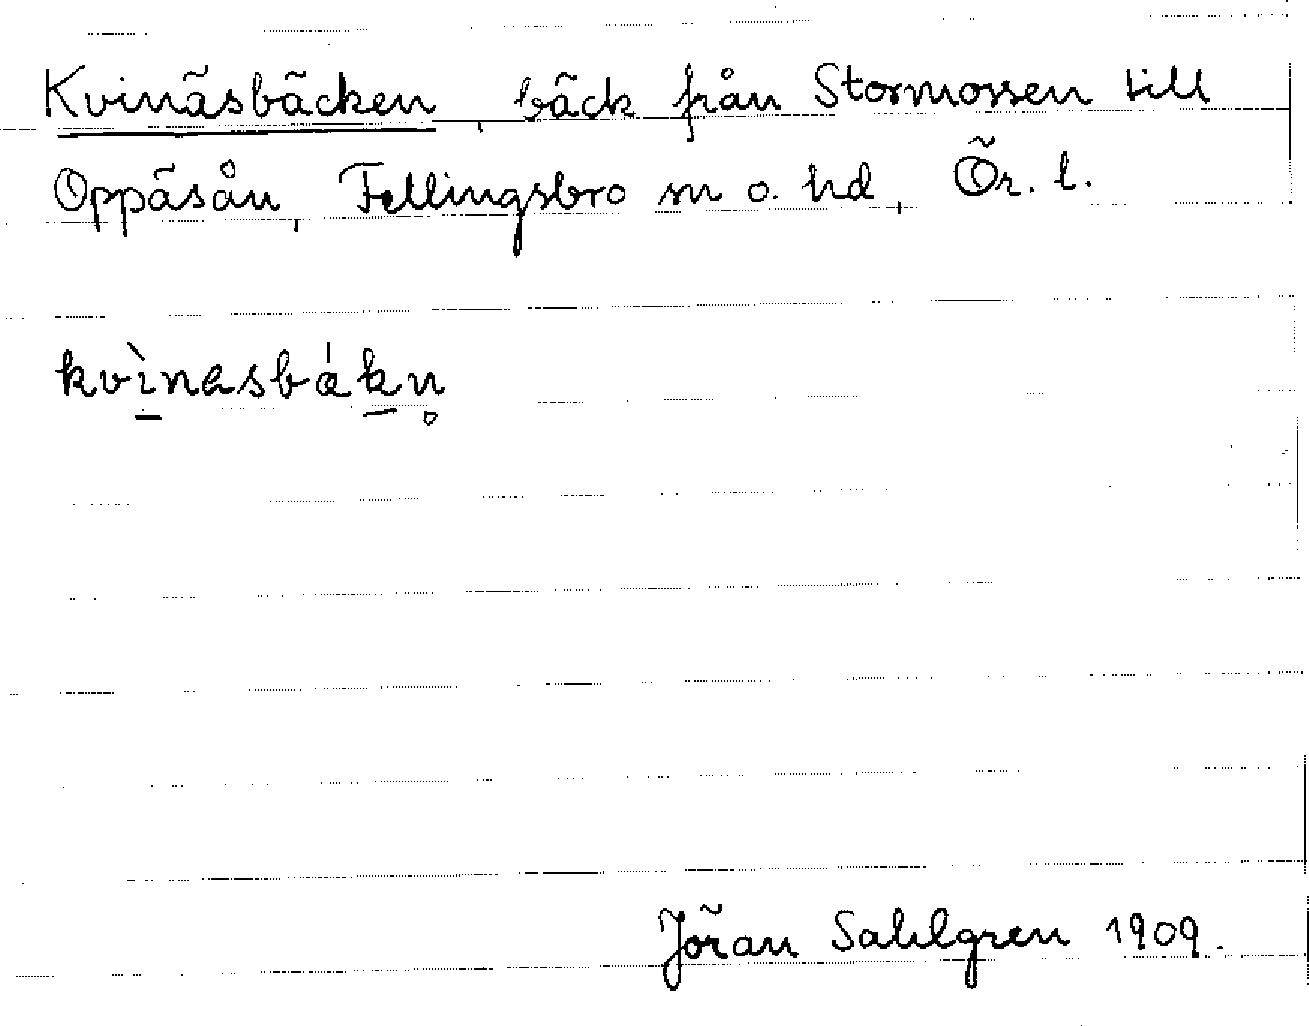 Kvinäsbäcken, bäck från Stormossen till
Oppäsån, Fellingsbro sn o. hd, Ör. l.
kvìnasbákn̥
Jöran Sahlgren 1909.